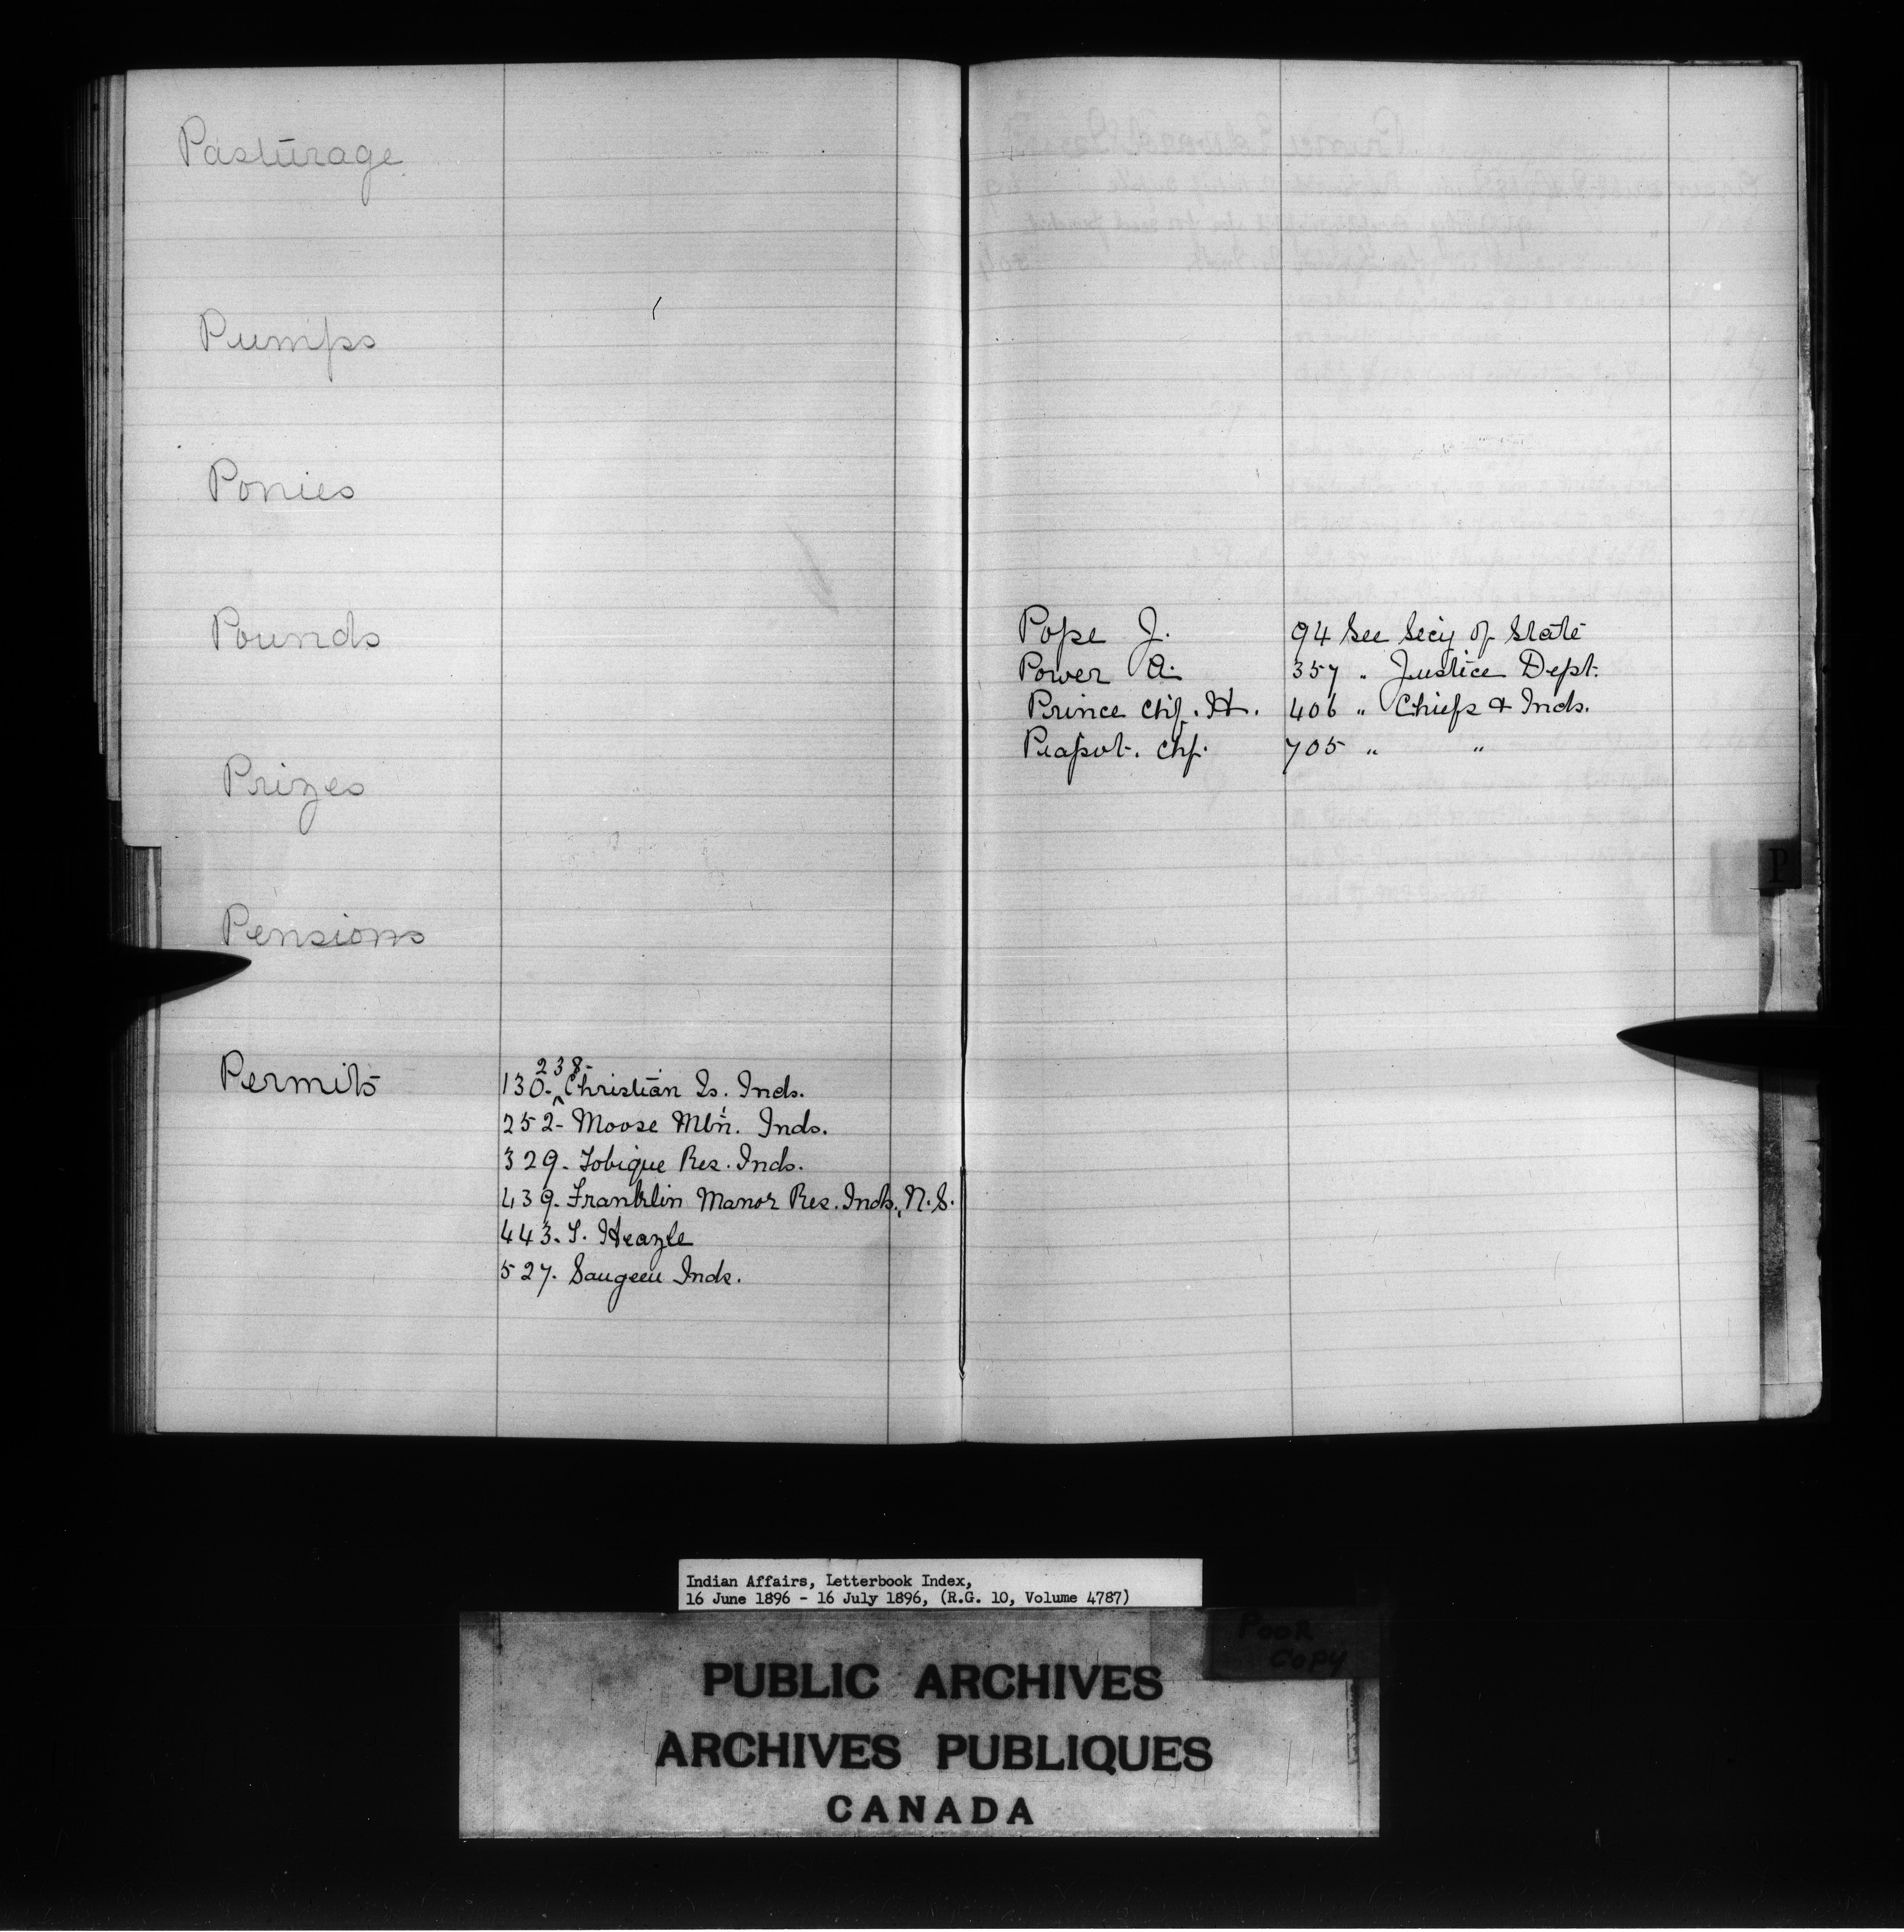 Pasturage
Pumps
Ponies
Pounds
Prizes
Pensions
Permits
238-
130- ^ Christian Is. Inds.
252- Moose Mtn. Inds.
329- Tobique Res. Inds.
439- Franklin Manor Res. Inds, N.S.
443- T. Heazle
527- Saugeen Inds.
Pope J. 94 See Secy of State
Power A. 357 " Justice Dept.
Prince Chf. H. 406 " Chiefs & Inds.
Piapot. Chf. 705 " "
P
Indian Affairs, Letterbook Index,
16 June 1896 - 16 July 1896, (R.G. 10, Volume 4787)
Poor
Copy
PUBLIC ARCHIVES
ARCHIVES PUBLIQUES
CANADA